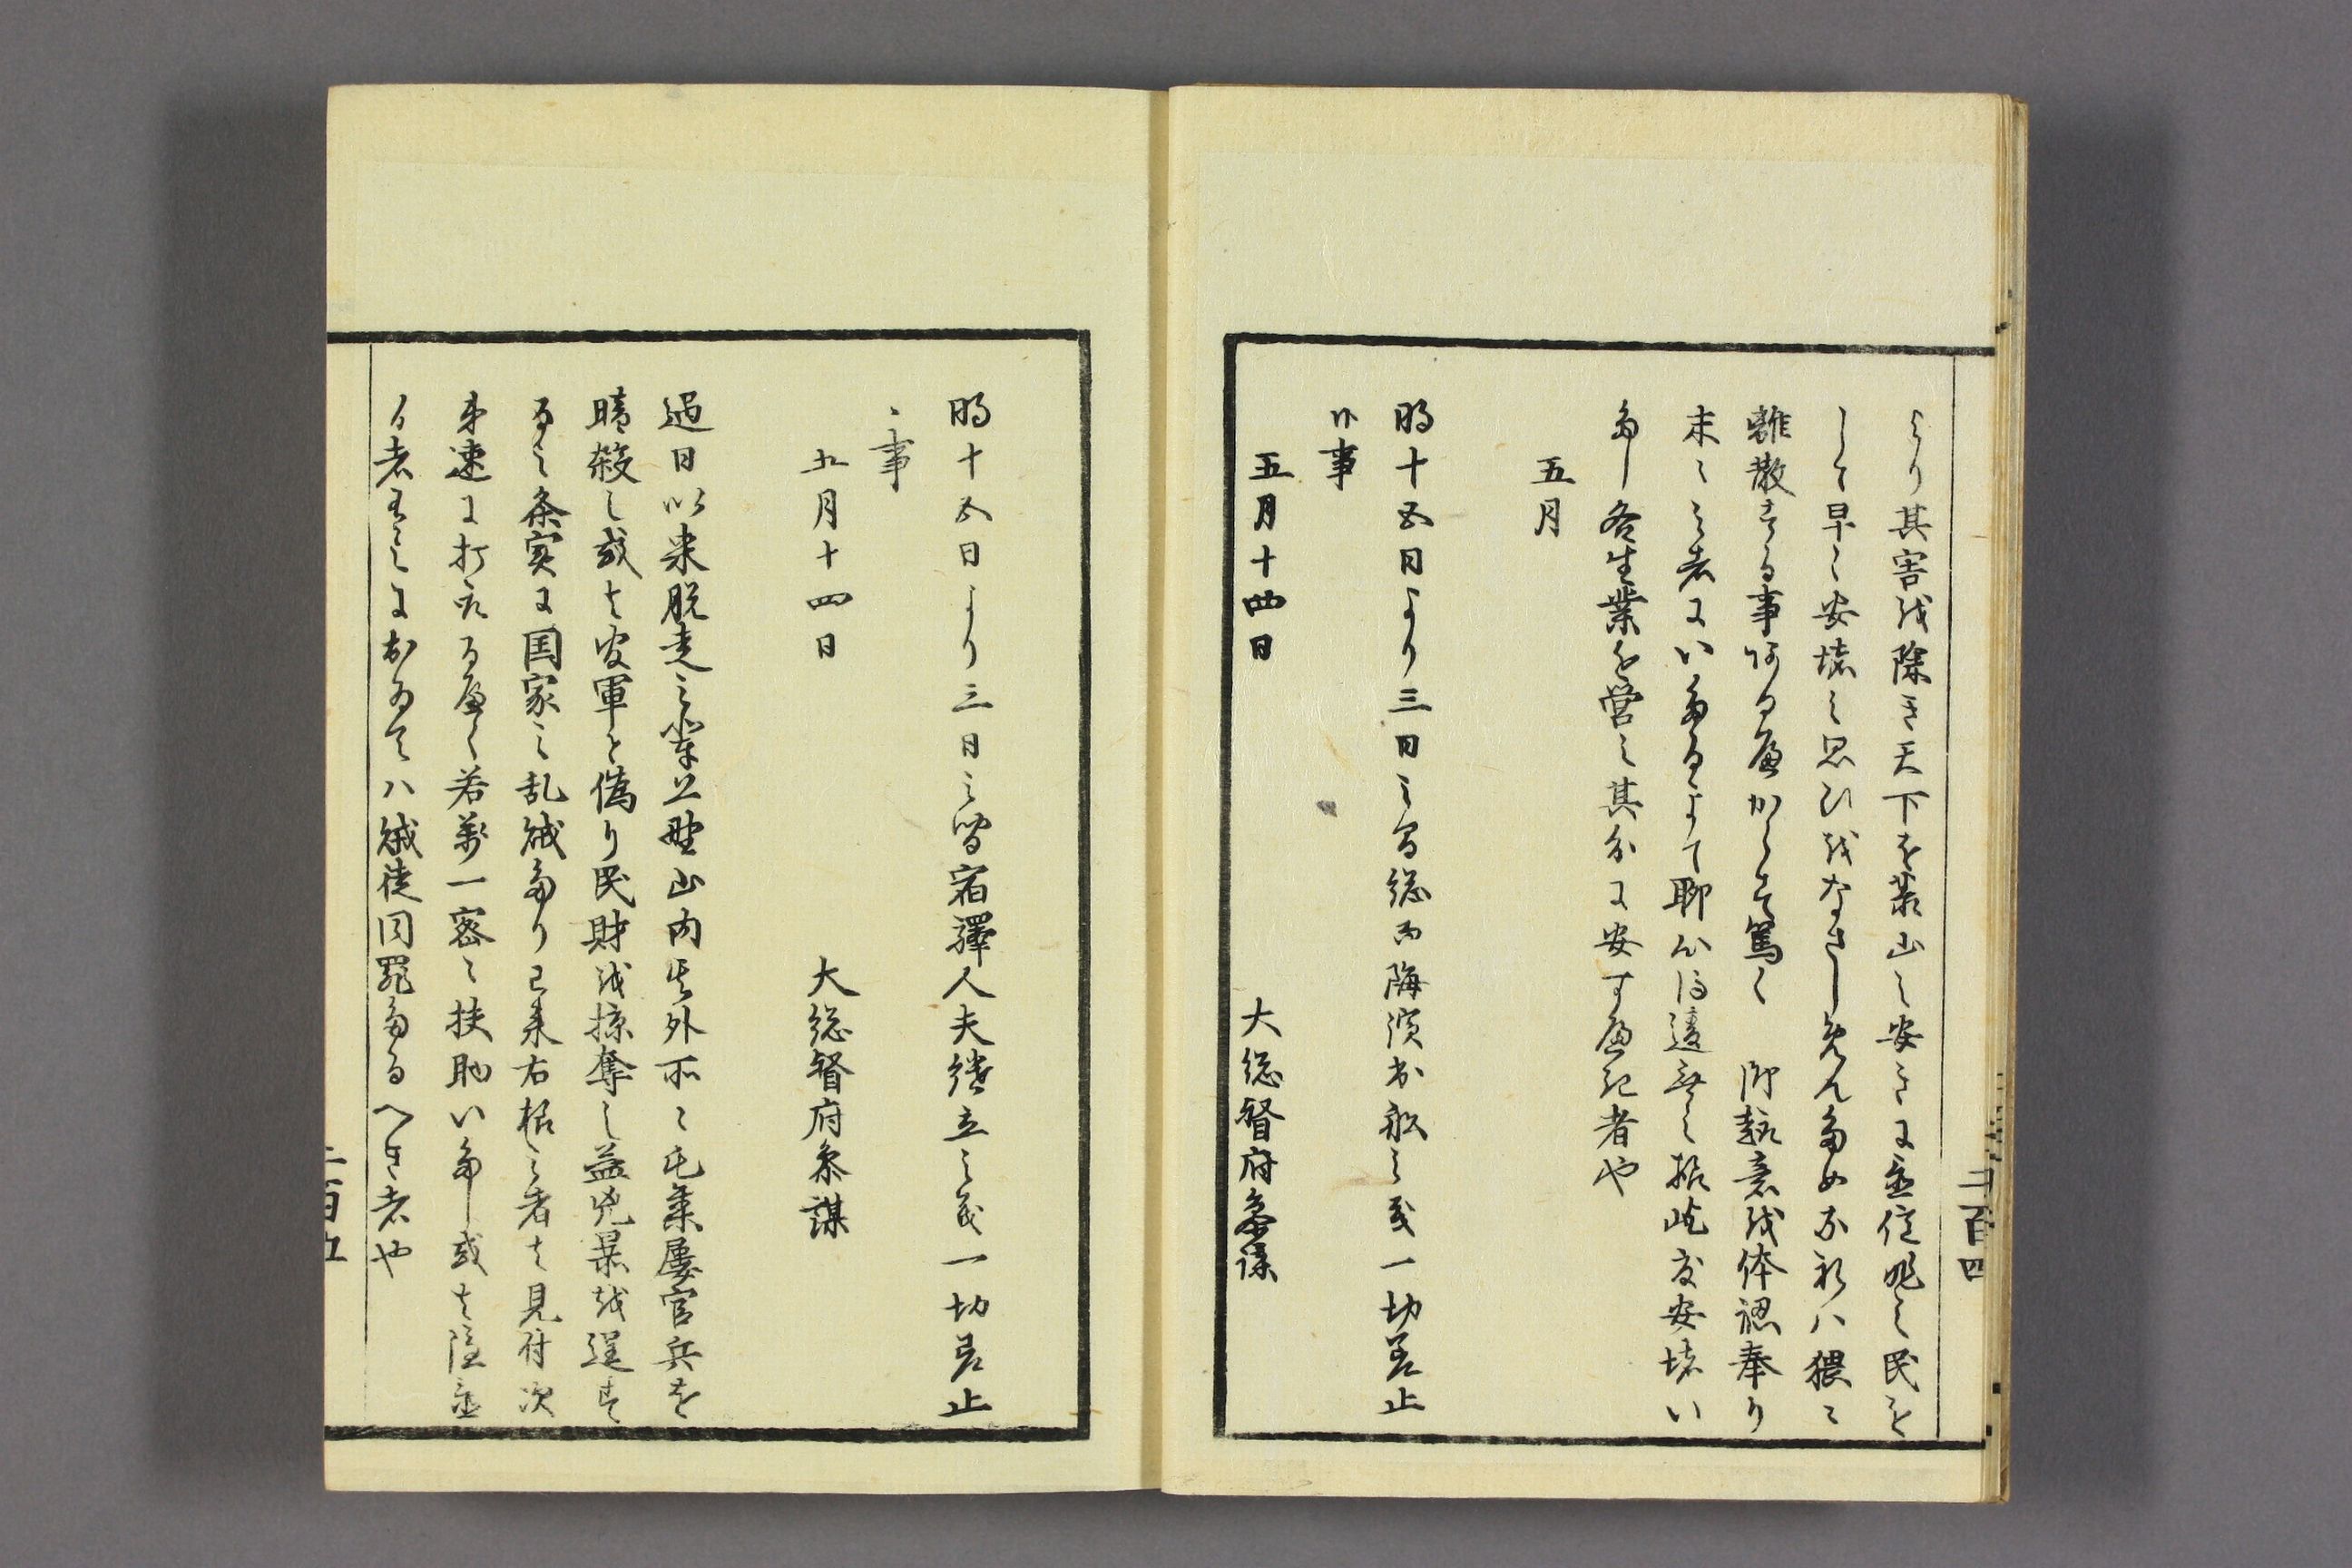 より其害を除き天下を泰山之安きに置億兆之民を
して早く安堵之思ひをなさしめんため不利ハ猥に
離散する事ある遍からす篤く　御趣意を体認奉り
末々之者にいたるまて聊心得違無之様此度安堵い
たし各生業を営之其分に安す遍き者や
五月
明十五日より三日之間総而海浜出船之義一切差止
候事
五月十四日　大総督府参謀
二百四
明十五日より三日之間宿驛人夫継立之義一切差止
候事
五月十四日　大総督府参謀
過日以来脱走之輩上野山内其外所々屯集屡官兵を
暗殺し或は官軍と偽り民財を掠奪し益兇暴を逞す
る之条実に国家之乱賊たり已来右様之者は見付次
第速に打取る遍く若萬一密に扶助いたし或は隠置
く者有之におゐてハ賊徒同罪たるへき者や
二百五